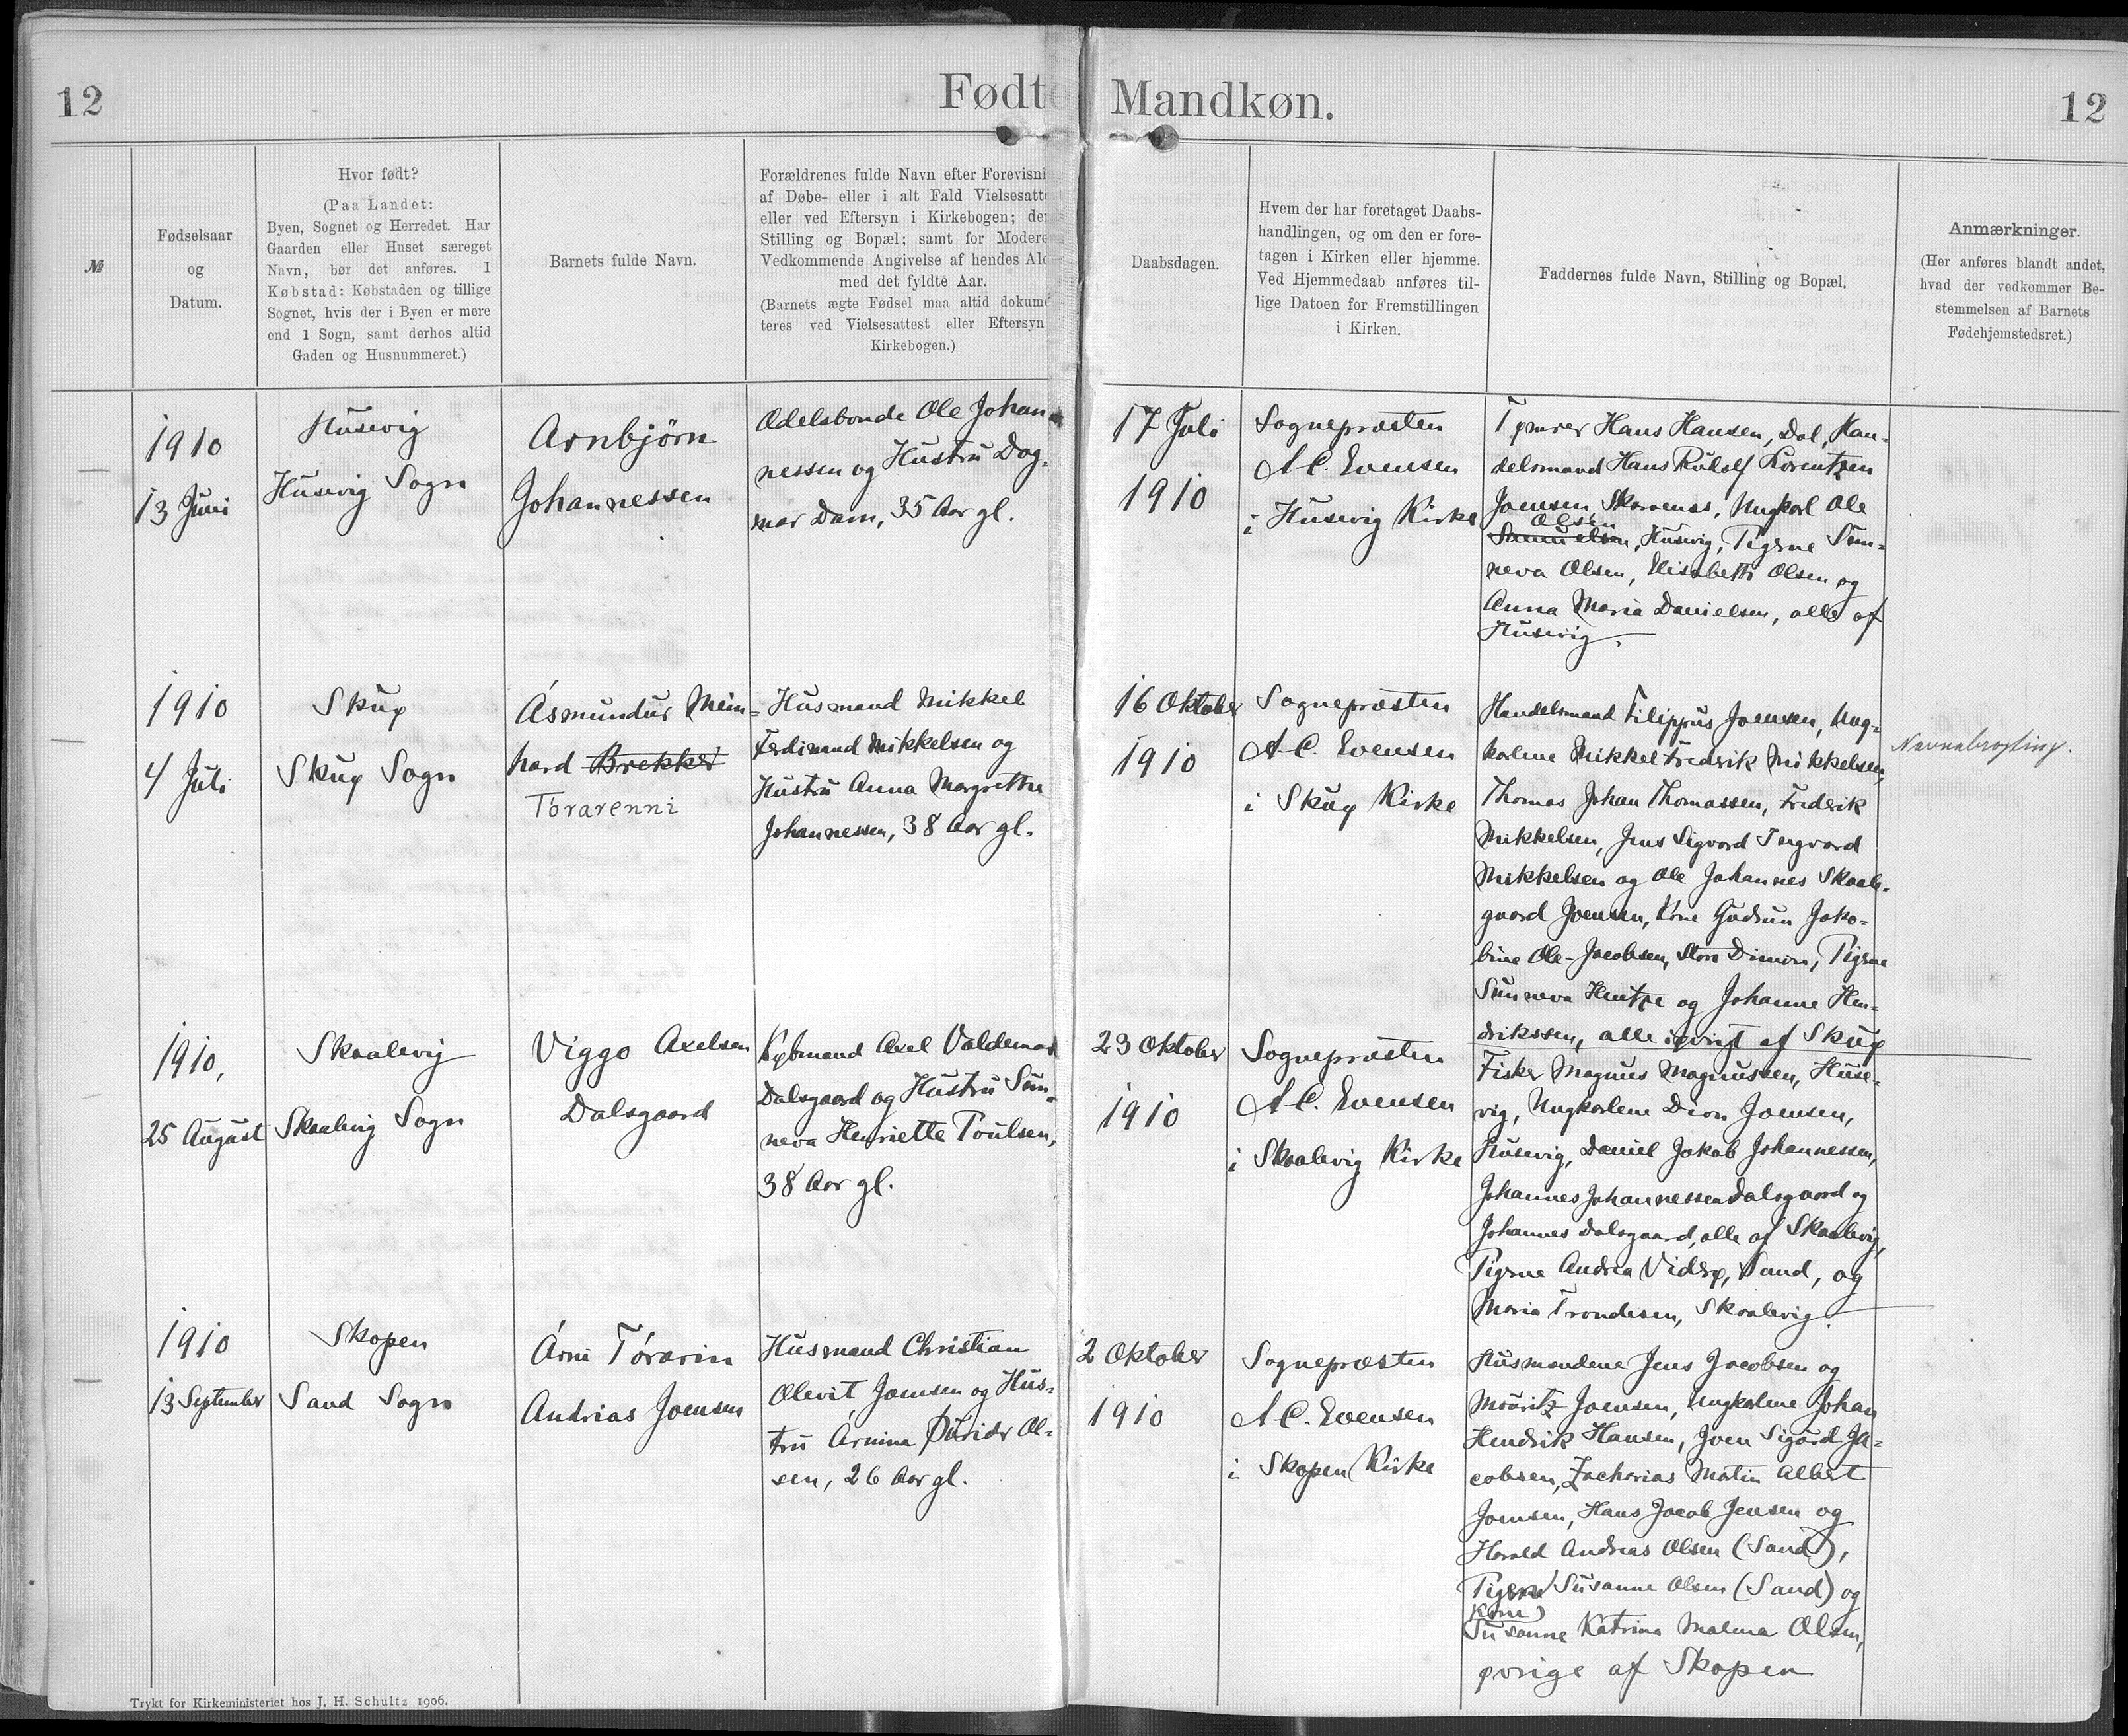 12
Fødte
Mandkøn.
12
№
Fødselsaar
og
Datum.
Hvor født?
(Paa Landet:
Byen, Sognet og Herredet. Har
Gaarden eller Huset særeget
Navn, bør det anføres. I
Købstad: Købstaden og tillige
Sognet, hvis der i Byen er mere
end 1 Sogn, samt derhos altid
Gaden og Husnummeret.)
Barnets fulde Navn.
Forældrenes fulde Navn efter Forevisni
af Døbe- eller i alt Fald Vielsesatte
eller ved Eftersyn i Kirkebogen; de
Stilling og Bopæl; samt for Modere
Vedkommende Angivelse af hendes Al
med det fyldte Aar.
(Barnets ægte Fødsel maa altid dokume
teres ved Vielsesattest eller Eftersyn
Kirkebogen.)
Daabsdagen.
Hvem der har foretaget Daabs-
handlingen, og om den er fore-
tagen i Kirken eller hjemme.
Ved Hjemmedaab anføres til-
lige Datoen for Fremstillingen
i Kirken.
Faddernes fulde Navn, Stilling og Bopæl.
Anmærkninger.
(Her anføres blandt andet,
hvad der vedkommer Be-
stemmelsen af Barnets
Fødehjemstedsret.)
1910
13 Juni
Husevig
Husevig Sogn
Arnbjörn
Johannessen
Odelsbonde Ole Johan
nessen og Hustru Dag-
mar Dam, 35 Aar gl.
17 Juli
1910
Sognepræsten
A C. Evensen
i Husevig Kirke
Tømrer Hans Hansen, Dal, Han-
delsmand Hans Rudolf Lorentzen
Joensen, Skarvenes, Ungkarl Ole
Olsen
Samuelsen, Husevig, Pigerne Sun-
neva Olsen, Elisabeth Olsen og
Anna Maria Danielsen, alle af
Husevig.
1910
4 Juli
Skuø
Skuø Sogn
Ásmundur Mein-
hard Brekker
Tórarenni
Husmand Mikkel
Ferdinand Mikkelsen og
Hustru Anna Margretha
Johannessen, 38 Aar gl.
16 Oktober
1910
Sognepræsten
A C. Evensen
i Skuø Kirke
Handelsmand Filippus Joensen, Ung-
karlene Mikkel Frederik Mikkelsen,
Thomas Johan Thomassen, Frederik
Mikkelsen, Jens Sigvard Ingvard
Mikkelsen og Ole Johannes Skaale-
gaard Joensen, Kone Gudrun Jako-
bine Ole-Jacobsen, Store Dimon, Pigerne
Sunneva Hentze og Johanne Hen-
drikssen, alle iøvrigt af Skuø
Navnebrogting.
1910,
25 August
Skaalevig
Skaalevig Sogn
Viggo Axelsen
Dalsgaard
Købmand Axel Valdemar
Dalsgaard og Hustru Sun-
neva Henriette Poulsen,
38 Aar gl.
23 Oktober
1910
Sognepræsten
A C. Evensen
i Skaalevig Kirke
Fisker Magnus Magnussen, Huse-
vig, Ungkarlene Dion Joensen,
Husevig, Daniel Jakob Johannessen,
Johannes Johannessen Dalsgaard og
Johannes Dalsgaard, alle af Skaalevig,
Pigerne Andrea Viderø, Sand, og
Maria Trondesen, Skaalevig.
1910
13 September
Skopen
Sand Sogn
Árni Tórarin
Andrias Joensen
Husmand Christian
Olevit Joensen og Hus-
tru Arnina Þúridr Ol-
sen, 26 Aar gl.
2 Oktober
1910
Sognepræsten
A C. Evensen
i Skopen Kirke
Husmændene Jens Jacobsen og
Mouritz Joensen, Ungkarlene Johan
Hendrik Hansen, Joen Sigurd Ja-
cobsen, Zacharias Matin Albert
Joensen, Hans Jacob Jensen og
Harald Andreas Olsen (Sand),
Pigen Susanne Olsen (Sand) og
Kone
Susanne Katrina Malena Olsen,
øvrige af Skopen
Trykt for Kirkeministeriet hos J. H. Schultz 1906.